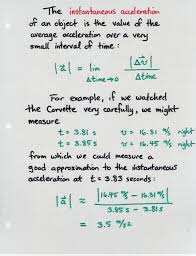 The instantaneous acceleration
of an object is the value of the
average acceleration over a very
small interval of time:
|a⃗| = lim Δtime→0 |Δv⃗| / Δtime
For example, if we watched
the Corvette very carefully, we might
measure
t = 3.81 s v = 16.31 m/s right
t = 3.85 s v = 16.45 m/s right
from which we could measure a
good approximation to the instantaneous
acceleration at t = 3.83 seconds:
|a⃗| ≈ |16.45 m/s - 16.31 m/s| / 3.85 s - 3.81 s
= 3.5 m/s²